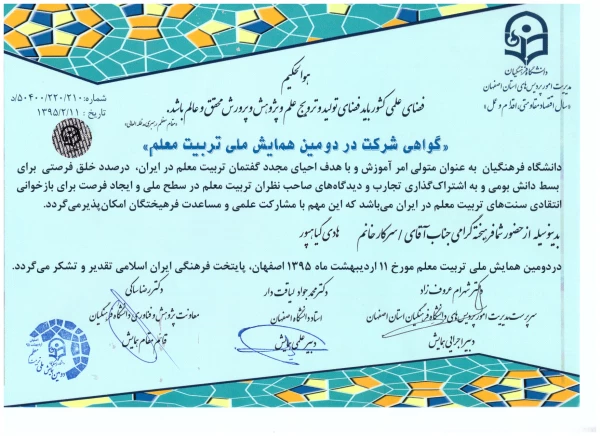 دانشگاه فرهنگیان
مدیریت امور پردیس‌های استان اصفهان
«سال اقتصاد مقاومتی، اقدام و عمل»
شماره: ۵۰۴۰۰/۲۲۰/۲۱۰/د
تاریخ : ۱۳۹۵/۲/۱۱
هوالحکیم
فضای علمی کشور باید فضای تولید و ترویج علم و پژوهش و پرورش محقق و عالم باشد.
«گواهی شرکت در دومین همایش ملی تربیت معلم»
دانشگاه فرهنگیان به عنوان متولی امر آموزش و با هدف احیای مجدد گفتمان تربیت معلم در ایران، درصدد خلق فرصتی برای
بسط دانش بومی و به اشتراک‌گذاری تجارب و دیدگاه‌های صاحب نظران تربیت معلم در سطح ملی و ایجاد فرصت برای بازخوانی
انتقادی سنت‌های تربیت معلم در ایران می‌باشد که این مهم با مشارکت علمی و مساعدت فرهیختگان امکان‌پذیر می‌گردد.
بدینوسیله از حضور شما فرهیخته گرامی جناب آقای / سرکار خانم هادی کیاهپور
در دومین همایش ملی تربیت معلم مورخ ۱۱ اردیبهشت ماه ۱۳۹۵ اصفهان، پایتخت فرهنگی ایران اسلامی تقدیر و تشکر می‌گردد.
دکتر شهرام عروف زاد
سرپرست مدیریت امور پردیس‌های دانشگاه فرهنگیان استان اصفهان
دبیر اجرایی همایش
دکتر محمد جواد لیاقت دار
استاد دانشگاه اصفهان
دبیر علمی همایش
دکتر رضا ساکی
معاونت پژوهش و فناوری دانشگاه فرهنگیان
قائم مقام همایش